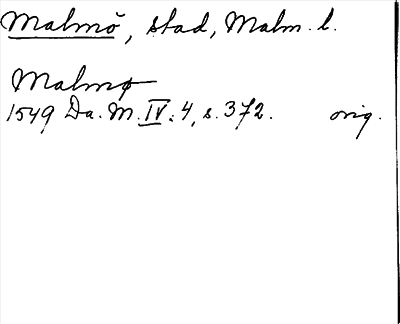 Malmö, stad, Malm. l.
Malmø
1549 Da. M. IV: 4, s. 372. orig.